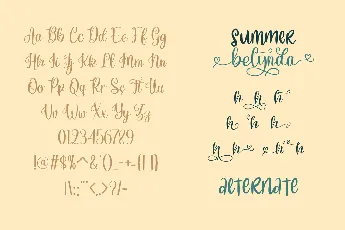 Aa Bb Cc Dd Ee Ff Gg
Hh Ii Jj Kk Ll Mm Nn
Oo Pp Qq Rr Ss Tt Uu
Vv Ww Xx Yy Zz
0123456789
!@#$%^&*()_-+-{}[]
|\:;"'<,>.?/~
SUMMER
belynda
h h h
h h h
h h h h
alternate